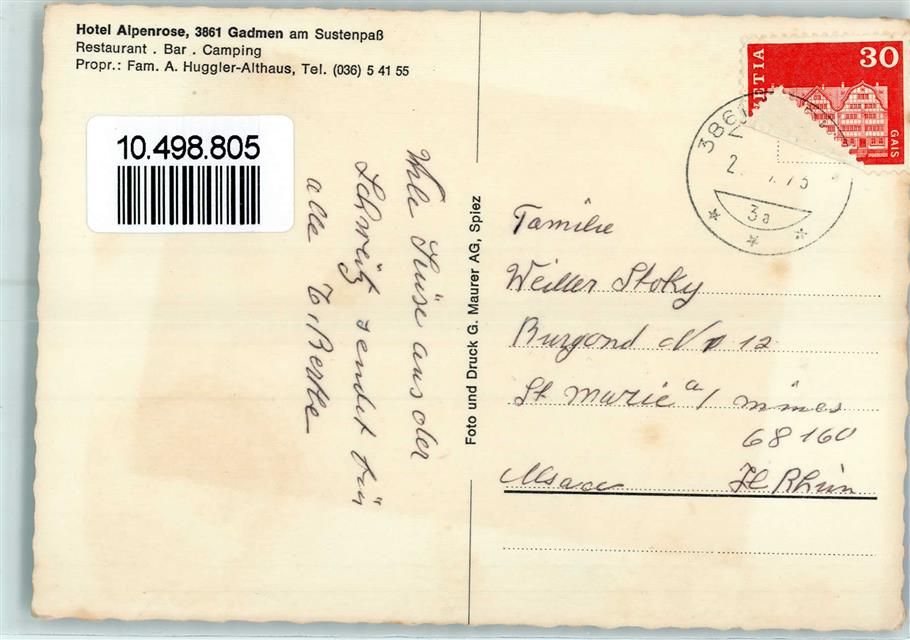 Hotel Alpenrose, 3861 Gadmen am Sustenpaß
Restaurant . Bar . Camping
Propr.: Fam. A. Huggler-Althaus, Tel. (036) 5 41 55
10.498.805
Foto und Druck G. Maurer AG, Spiez
HELVETIA
30
GAIS
3861
3a
Viele Grüse aus der
Schweitz sendet für
alle T. Berthe
Familie
Weiller Stoky
Burgond No 12
St Marie a/ mines
68160
Alsace Ht Rhin